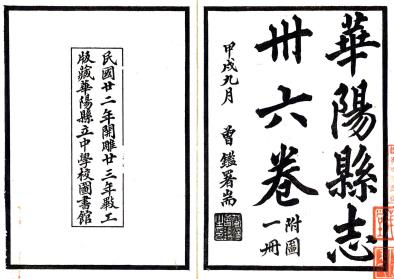 華陽縣志
卅六卷
附圖一冊
甲戌九月
曾鑑署耑
民國廿二年開雕廿三年㓝工
版藏華陽縣立中學校圖書館